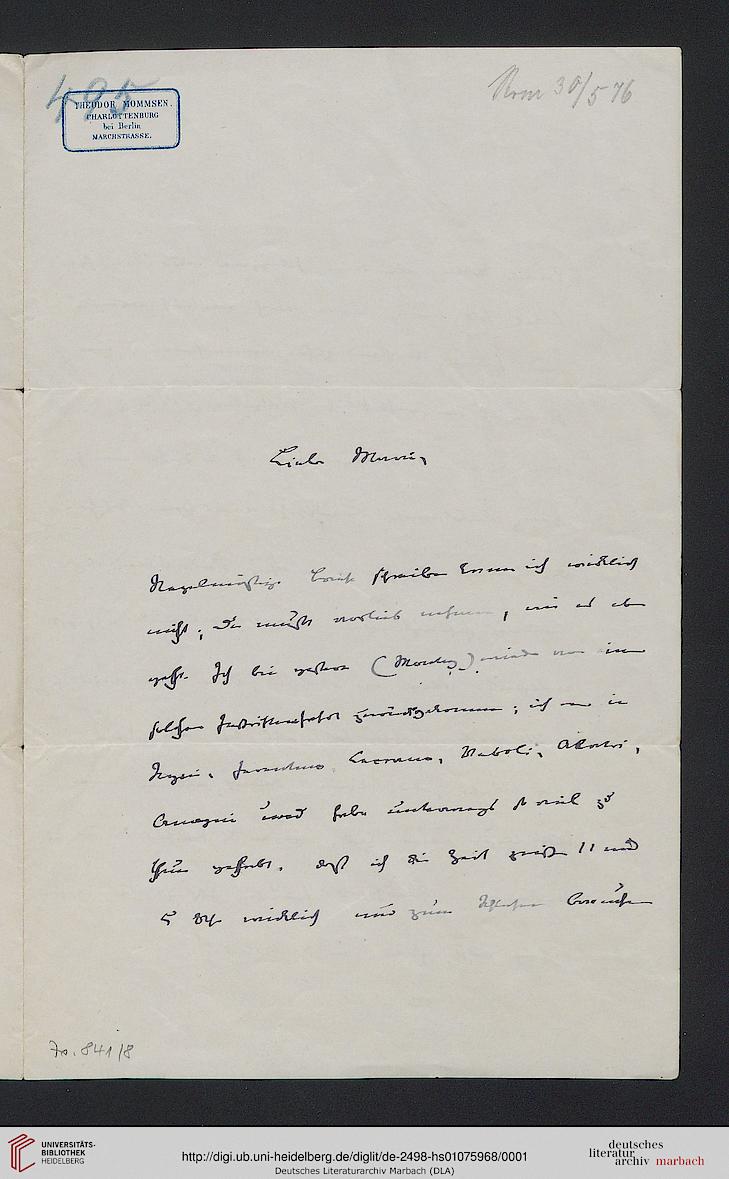 495
THEODOR MOMMSEN.
CHARLOTTENBURG
bei Berlin
MARCHSTRASSE.
Rom 30/5 76
Liebe Marie,
Regelmäßige Briefe schreiben kann ich wirklich
nicht; Du mußt vorlieb nehmen, wie es eben
geht. Ich bin gestern (Montag) wieder von einer
solchen zurückgekommen; ich war in
Segni, Ferentino, Veroli, Alatri,
Anagni und habe unterwegs so viel zu
thun gehabt, daß ich die Zeit zwischen 11 und
5 Uhr wirklich nur zum Schlafen brauchte
841/8
UNIVERSITÄTS-
BIBLIOTHEK
HEIDELBERG
http://digi.ub.uni-heidelberg.de/diglit/de-2498-hs01075968/0001
Deutsches Literaturarchiv Marbach (DLA)
deutsches
literatur
archiv marbach